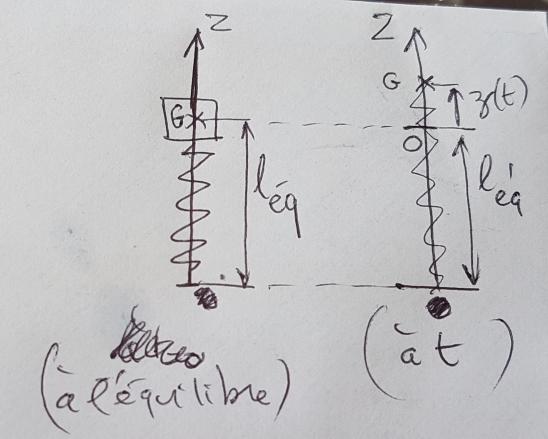 Z
G
l éq
(à l'équilibre)
Z
G
z(t)
O
l éq
(à t)